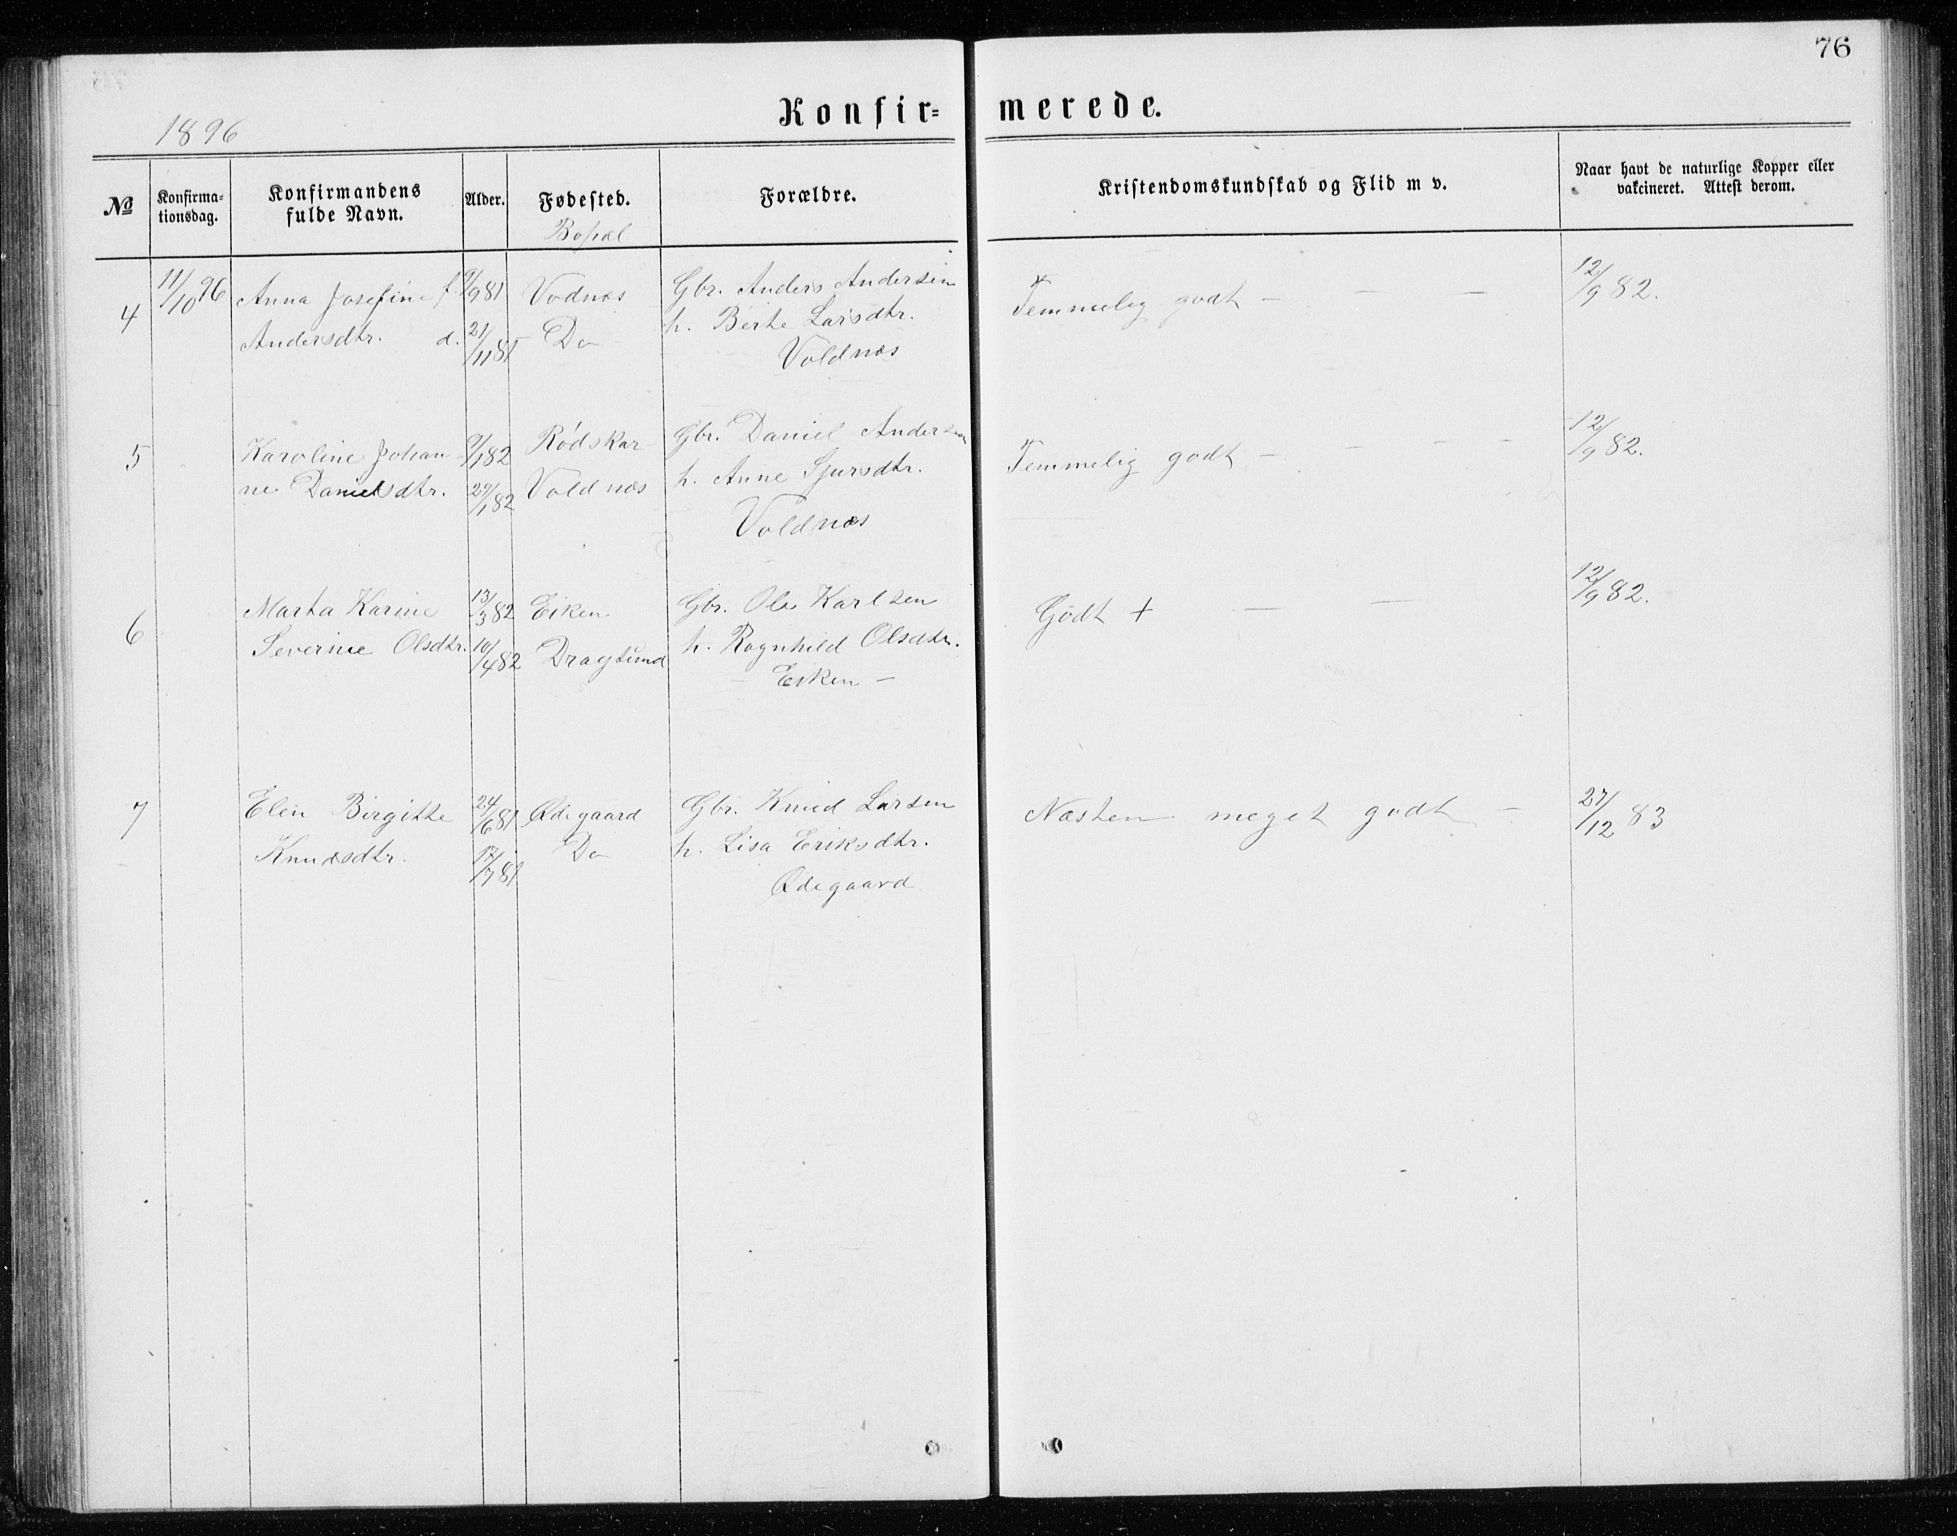 76
Konfir=merede.
1896
№ Konfirma-tionsdag. Konfirmandens fulde Navn. Alder. Fødested. Forældre. Kristendomskundskab og Flid m v. Naar havt de naturlige Kopper eller vakcineret. Attest derom.
Bopæl
4 11/10 96 Anna Josefine f. 9/9 81 Vodnæs Gbr. Anders Andersen Temmelig godt — — — 12/9 82.
Andersdtr. d. 21/11 81 Do h. Berte Larsdtr.
Voldnæs
5 Karoline Johan 9/1 82 Rødskar Gbr. Daniel Andersen Temmelig godt — — — — 12/9 82.
ne Danielsdtr. 29/1 82 Voldnæs h. Anne Sjursdtr.
Voldnæs
6 Marta Karine 13/3 82 Eiken Gbr. Ole Karlsen Godt + — — 12/9 82.
Severine Olsdtr. 10/4 82 Dragsund h. Ragnhild Olsdtr.
— Eiken —
7 Elen Birgitte 24/6 81 Ødegaard Gbr. Knud Larsen Næsten meget godt — 27/12 83
Knudsdtr. 17/7 81 Do h. Lisa Eriksdtr.
Ødegaard